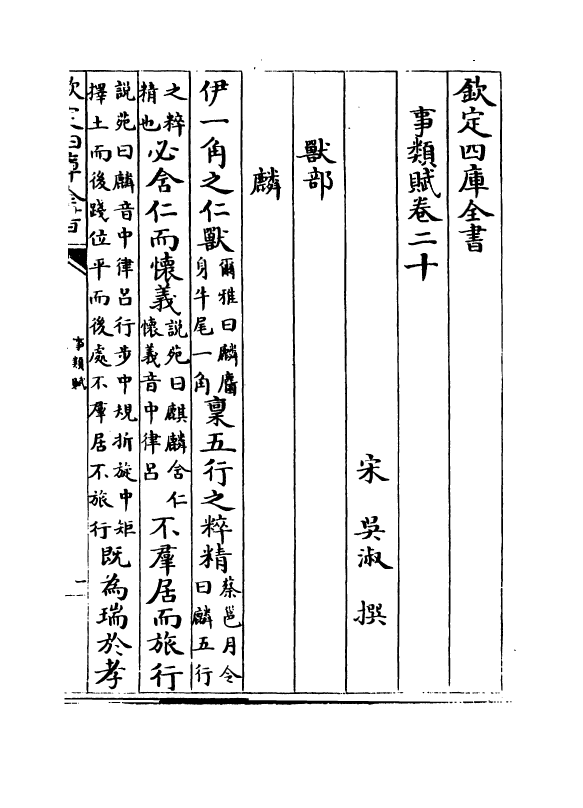 欽定四庫全書
事類賦卷二十
宋 吳淑 撰
獸部
麟
伊一角之仁獸爾雅曰麟麕身牛尾一角稟五行之粹精蔡邕月令曰麟五行
之粹精也必含仁而懷義說苑曰麒麟含仁懷義音中律呂不羣居而旅行
說苑曰麟音中律呂行步中規折旋中矩擇土而後踐位平而後處不羣居不旅行既為瑞於孝
欽定四庫全書
事類賦
一